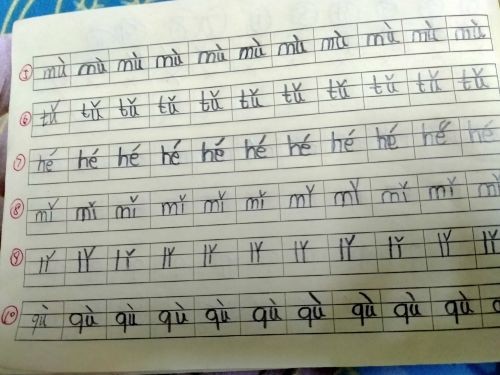 ⑤ mù mù mù mù mù mù mù mù mù mù mù
⑥ tǔ tǔ tǔ tǔ tǔ tǔ tǔ tǔ tǔ tǔ tǔ
⑦ hé hé hé hé hé hé hé hé hé hé hé
⑧ mǐ mǐ mǐ mǐ mǐ mǐ mǐ mǐ mǐ mǐ mǐ
⑨ lǐ lǐ lǐ lǐ lǐ lǐ lǐ lǐ lǐ lǐ lǐ
⑩ qù qù qù qù qù qù qù qù qù qù